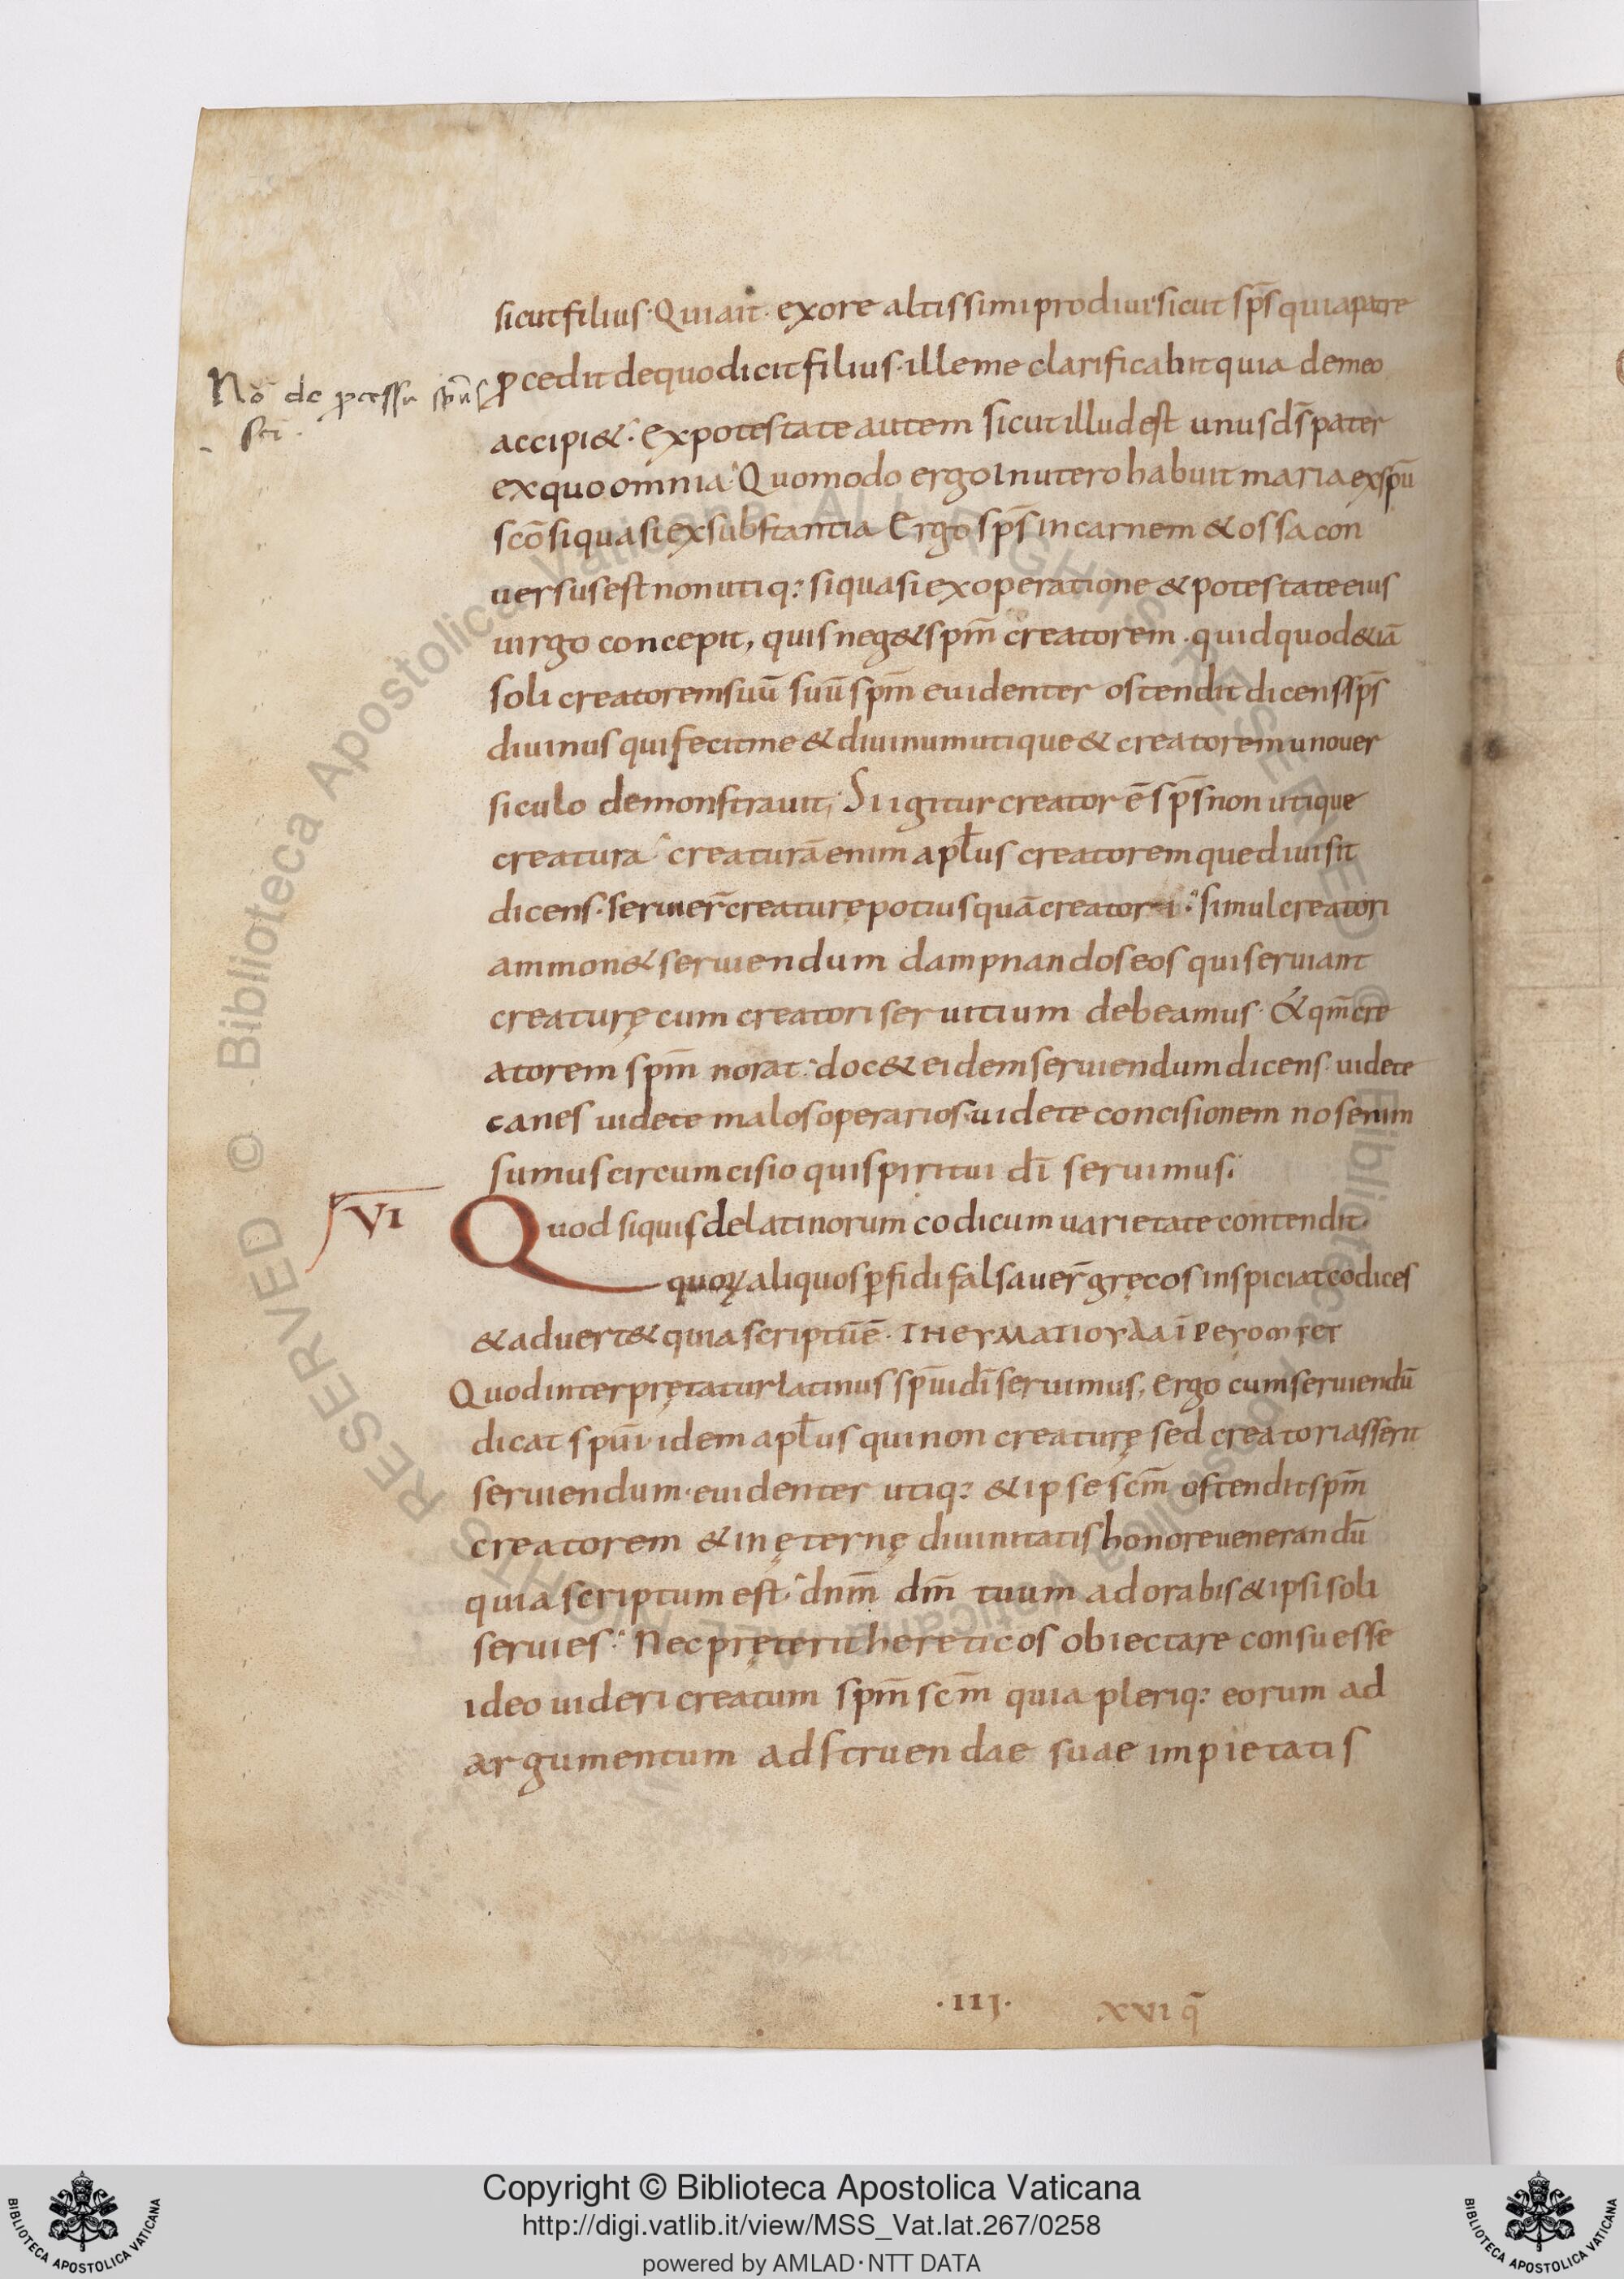 sicut filius · Qui ait · ex ore altissimi prodiui · sicut sp̄s qui a patre
Nō de ꝓcessu sp̄us
sci.
ꝓcedit de quo dicit filius · ille me clarificabit quia de meo
accipi& · ex potestate autem sicut illud est unus d̄s pater
ex quo omnia · Quomodo ergo in utero habuit maria ex sp̄u
sc̄o si quasi ex substantia Ergo sp̄s in carnem & ossa con
uersus est non utiq; si quasi ex operatione & potestate eius
uirgo concepit, quis neg& sp̄m creatorem · quid quod &iā
soli creatorem suū suū sp̄m euidenter ostendit dicens sp̄s
diuinus qui fecit me & diuinum utique & creatorem uno uer
siculo demonstrauit; Si igitur creator ē sp̄s non utique
creatura · creaturā enim apl̄us creatoremque diuisit
dicens · seruier̄ creaturę potius quā creatori · simul creatori
ammon& seruiendum dampnandos eos qui seruiant
creaturę cum creatori seruitium debeamus · & qm̄ cre
atorem sp̄m norat · doc& eidem seruiendum dicens · uidete
canes uidete malos operarios · uidete concisionem nos enim
sumus circumcisio qui spiritui dī seruimus;
VI
Quod si quis de latinorum codicum uarietate contendit
quoꝝ aliquos ꝑfidi falsauer̄ gręcos inspiciat codices
& aduert& quia scriptū ē ·
Quod interprętatur latinus sp̄ui dī seruimus, ergo cum seruiendū
dicat sp̄ui idem apl̄us qui non creaturę sed creatori asserit
seruiendum · euidenter utiq; & ipse sc̄m ostendit sp̄m
creatorem & in ęternę diuinitatis honore uenerandū
quia scriptum est · dn̄m dm̄ tuum adorabis & ipsi soli
seruies · Nec pręterit hereticos obiectare consuesse
ideo uideri creatum sp̄m sc̄m quia pleriq; eorum ad
argumentum adstruendae suae impietatis
· III · XVI q̄
Copyright © Biblioteca Apostolica Vaticana
http://digi.vatlib.it/view/MSS_Vat.lat.267/0258
powered by AMLAD · NTT DATA
BIBLIOTECA APOSTOLICA VATICANA
BIBLIOTECA APOSTOLICA VATICANA